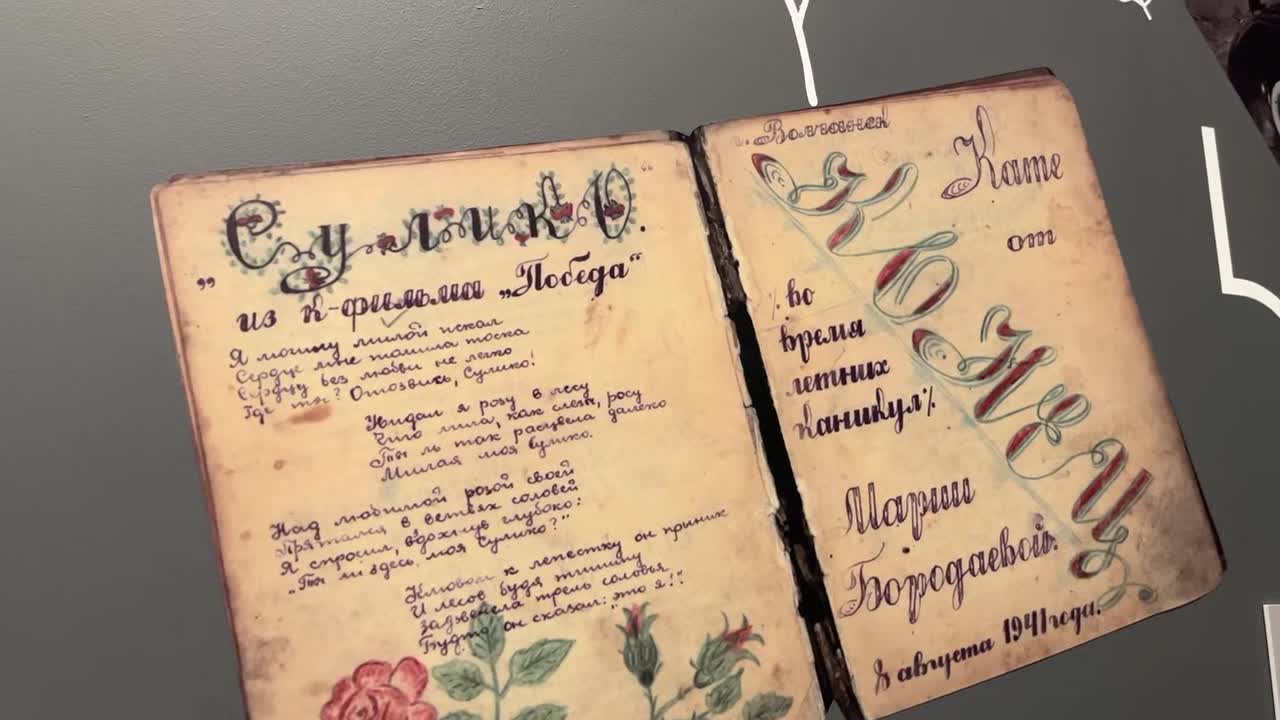 „Сулико“.
из к-фильма „Победа“
Я могилу милой искал
Сердце мне томила тоска
Сердцу без любви не легко
Где ты? Отозвись, Сулико!
Увидал я розу в лесу
Что лила, как слезы, росу
Ты ль так расцвела далеко
Милая моя Сулико.
Над любимой розой своей
Прятался в ветвях соловей
Я спросил, вздохнув глубоко:
„Ты ли здесь, моя Сулико?“
Клювом к лепестку он приник
И лесов будя тишину
Зазвенела трель соловья
Будто он сказал: „это я!“
г. Волчанск
Кате
от
% во
время
летних
каникул %
Марии
Бородаевой.
8 августа 1941 года.